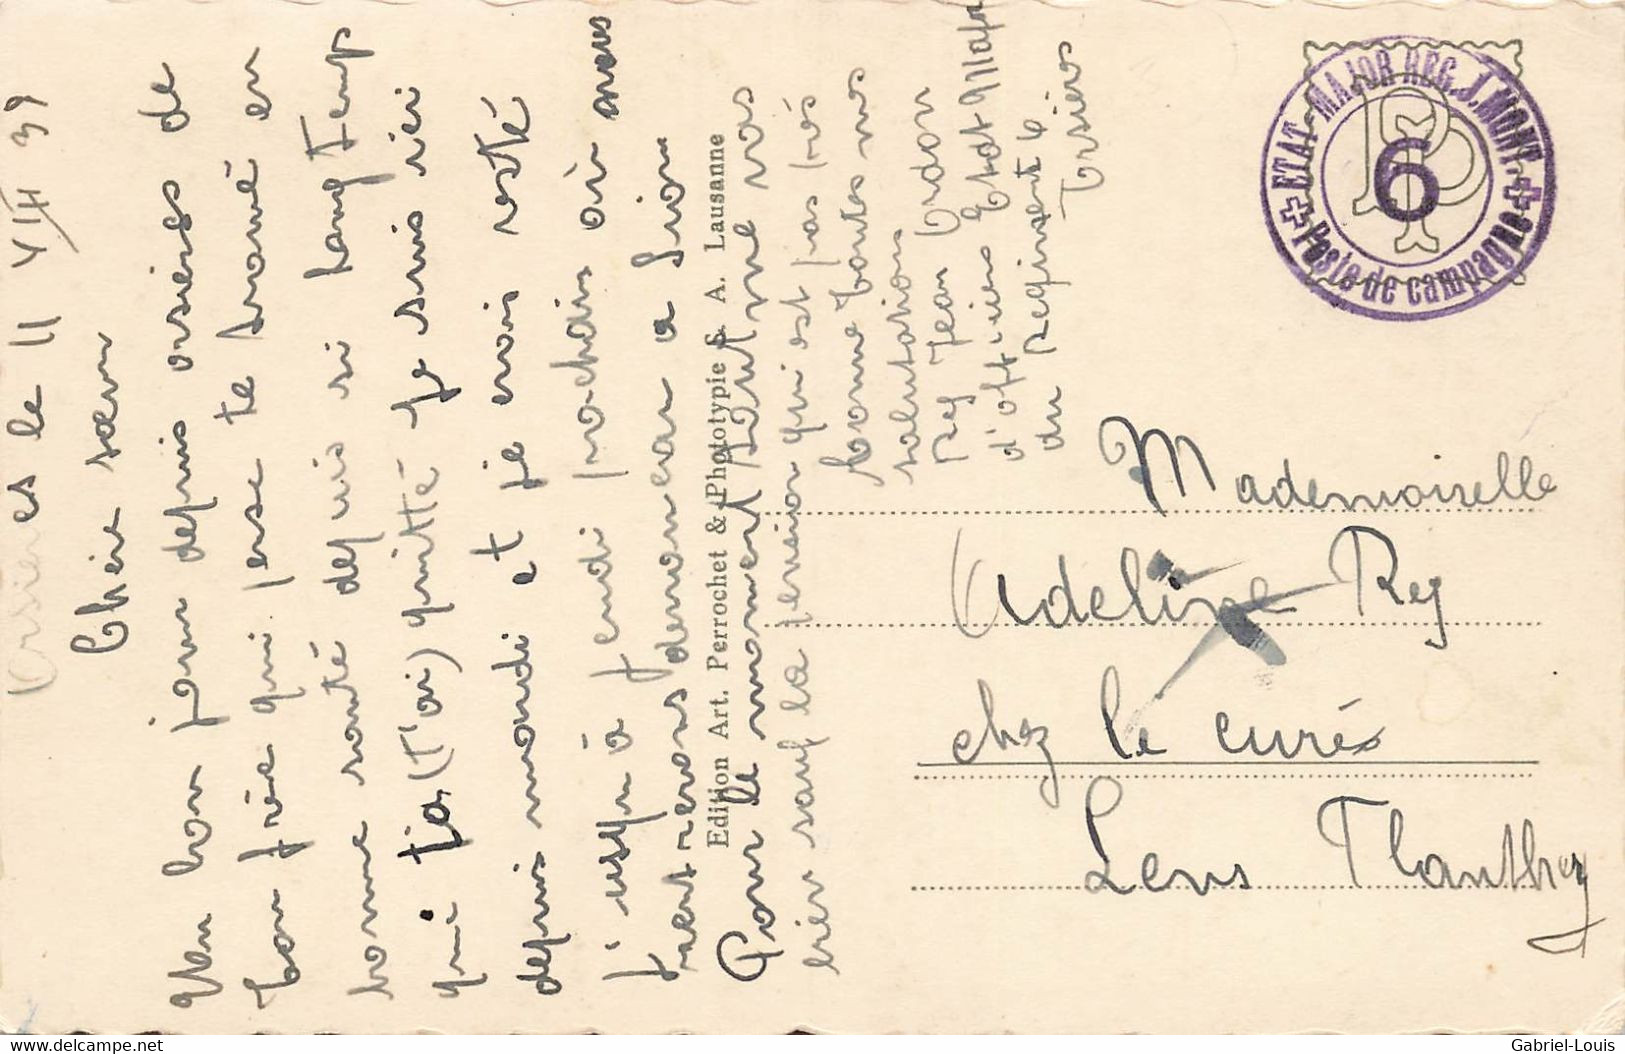 Orsières le 11 VII 39
Chèr sœur
Un bon jour depuis orsières de
ton frère qui pense te trouvé en
bonne santé depuis si lang Temp
qui t'a (t'ai) quitté je suis ici
depuis mardi et je crois resté
j'usqu'à jeudi prochain où nous
rentrerons demoneur a Sion
Pour le moment tout me vas
bièv sauf la pension qui est pas trés
bonne toutes mes
salutations
Rey Jean Ordon
d'officiers Etat Major
du Regiment 6
Orsières
Edition Art. Perrochet & Phototypie S. A. Lausanne
ETAT-MAJOR REG. J. MONT.
6
Poste de campagne
PP
Mademoiselle
Adeline Rey
chez le curés
Lens Flanthey
Gabriel-Louis
www.delcampe.net